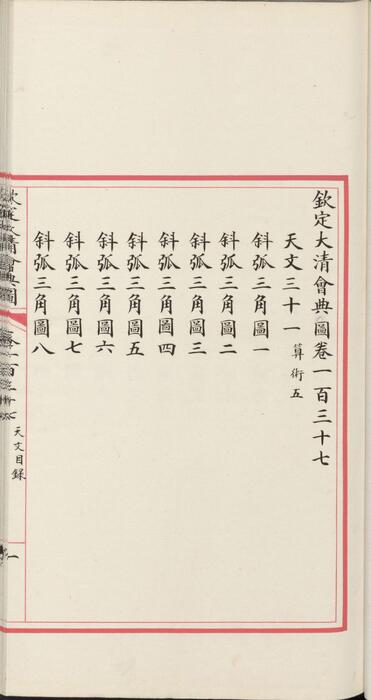 欽定大清會典圖卷一百三十七
天文三十一 算術五
斜弧三角圖一
斜弧三角圖二
斜弧三角圖三
斜弧三角圖四
斜弧三角圖五
斜弧三角圖六
斜弧三角圖七
斜弧三角圖八
欽定大清會典圖
卷一百三十七
天文目錄
一